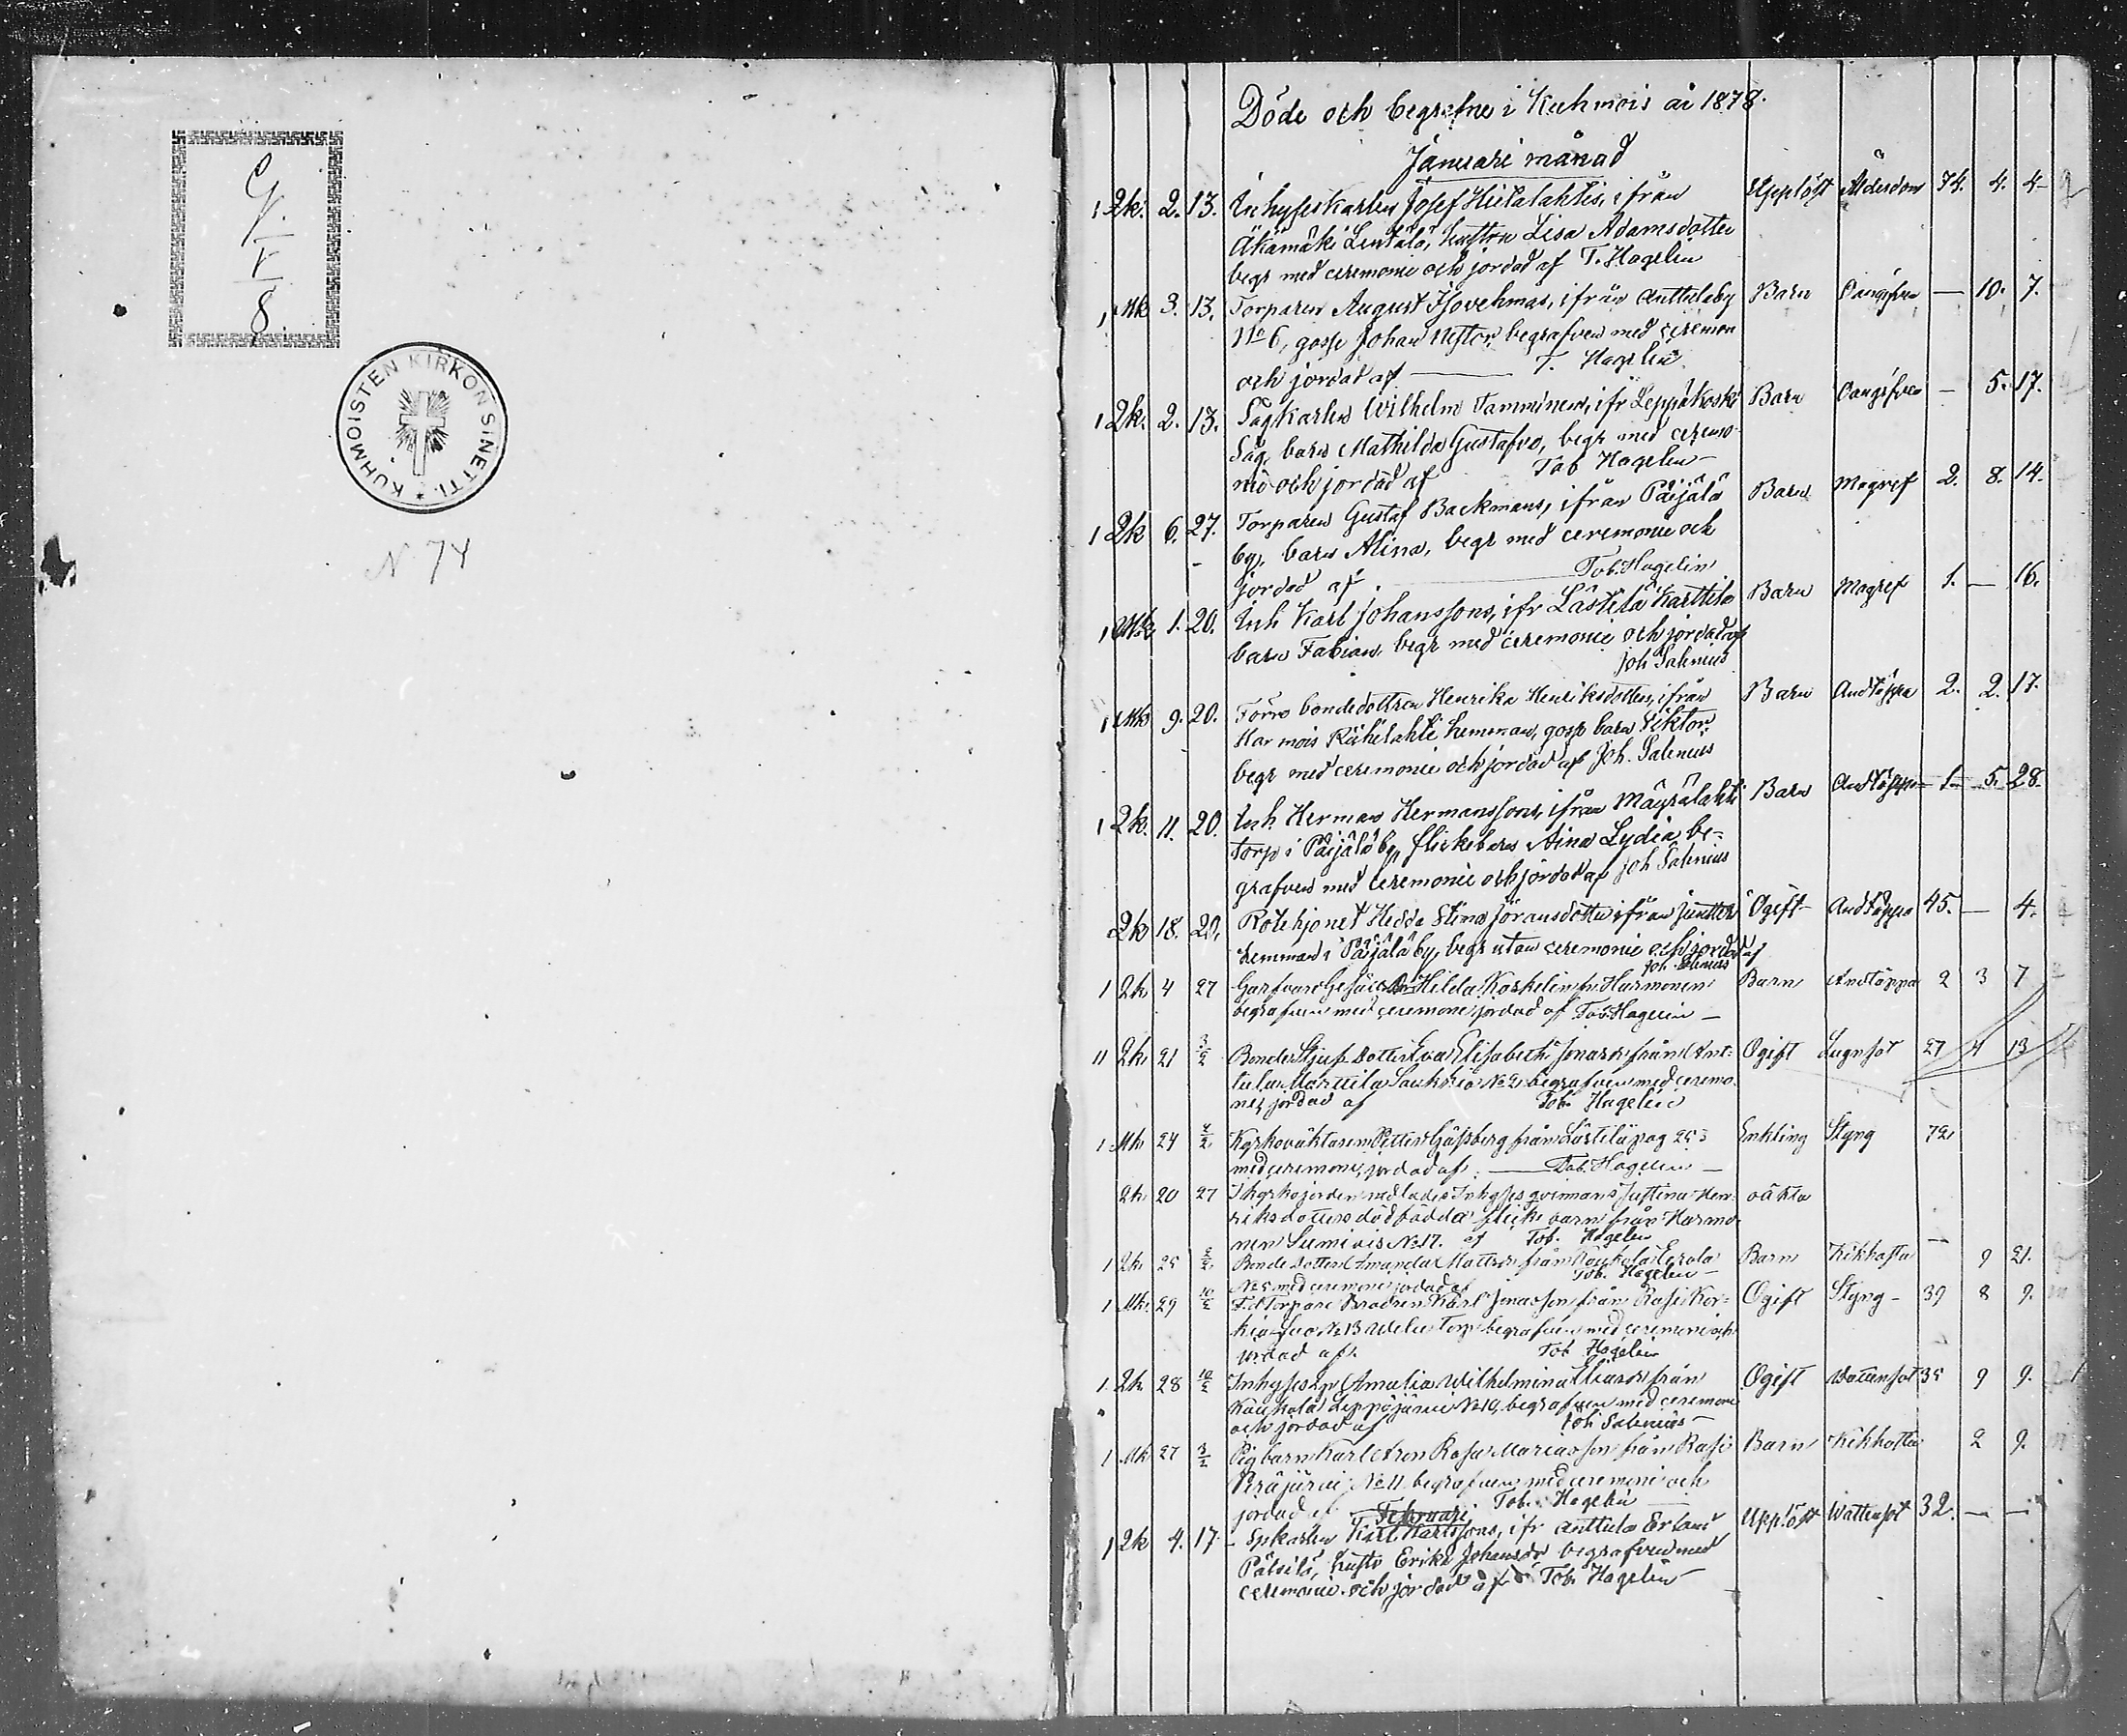 G.
I
8.
KUHMOISTEN KIRKON SINETTI. *
N 74
Döde och begrafne i Kuhmois år 1878.
Januari månad
1 2k. 2. 13. Inhyses karlen Josef Hietalahtis, ifrån Upplöst Ålderdom 74. 4. 4
Äkämäki Lentälä, hustru Lisa Adamsdotter
begr med ceremonie och jordad af T. Hagelin
1 Mk 3. 13. Torparen August ifrån Anttulaby Barn Oangifven — 10. 7.
No 6, gosse Johan Nestor begrafven med ceremon
och jordad af — T. Hagelin
1 2k. 2. 13. Sågkarlen Wilhelm Tamminens, ifr Leppäkoski Barn Oangifven — 5. 17.
Såg, barn Mathilda Gustafva, begr med ceremo-
nie och jordad af Tob Hagelin —
1 2k 6. 27. Torparen Gustaf Backmans, ifrån Päijälä Barn Magref 2. 8. 14.
by, barn Alina, begr med ceremonie och
jordad af — Tob. Hagelin
1 Mk 1. 20. Inh Karl Johanssons, ifr Lästilä Karttila Barn Magref 1. — 16.
barn Fabian, begr med ceremonie och jordad af
Joh Salenius
1 Mk 9. 20. Torro bondedottren Henrika Henriksdotters, ifrån Barn Andtäppa 2. 2. 17.
Harmois hemman, gosse barn Viktor,
begr med ceremonie och jordad af Joh. Salenius
1 2k. 11. 20. Inh. Herman Hermanssons, ifrån Mäyrälahti Barn Andtäppa 1. 5. 28.
torp i Päijälä by, flickebarn Aina Lydia be-
grafven med ceremonie och jordad af Joh Salenius
2k 18. 20. Rotehjonet Hedda Stina Göransdotter ifrån Juuttila Ogift Andtäppa 45. — 4.
hemman i Päijälä by, begr utan ceremonie och jordad af
Joh Salenius
1 2k 4 27 Garfvare Hilda Koskelin fr Harmonen Barn Andtäppa 2 3 7
begrafven med ceremoni jordad af Tob. Hagelin —
11 2k 21 3/2 Bonde Styfdotter Eva Elisabeth Jonasdr från Ant- Ogift Lugnsot 27 4 13
tula Marttila Saukkio No 2 begrafven med ceremo-
ni, jordad af Tob. Hagelin
1 Mk 24 3/2 Kyrkovaktaren Petter från Lästilä pag 253 Enkling Styng 72,
med ceremoni, jordad af. — Tob. Hagelin —
2k 20 27 I kyrkojorden nedlades Inhyses qvinnans Justina Hen- oäkta
riksdotters dödfödda flicke barn från Harmo-
nen No 17. af Tob. Hagelin
1 2k 25 3/2 Bonde dotter Amanda Mattsdr från Kaukola Erola Barn Kikhosta — 9 21.
No 5 med ceremoni jordad af Tob. Hagelin —
1 Mk. 29 10/2 F.d Torpare Brodren Karl Jonasson från Rasi Kor- Ogift Styng 39 8 9.
No 13 torp begrafven med ceremoni och
jordad af. Tob Hagelin
1 2k 28 10/2 Inhyses Amalia Wilhelmina Eliasdr från Ogift Wattensot 35 9 9.
Kaukola Leppäjärvi No 10, begrafven med ceremoni
och jordad af Joh Salenius —
1 Mk 27 3/2 Pigbarn Karl Aron Rosa Mariasson från Rasi Barn Kikhosta 2 9.
No 11 begrafven med ceremoni och
jordad af Tob. Hagelin
Februari
1 2k 4. 17. Spkarlen Karl Karlssons, ifr Anttula Erland Upplöst Wattensot 32. — —
Pätsilä, hustru Erika Johansdr begrafven med
ceremonie och jordad af Tob. Hagelin